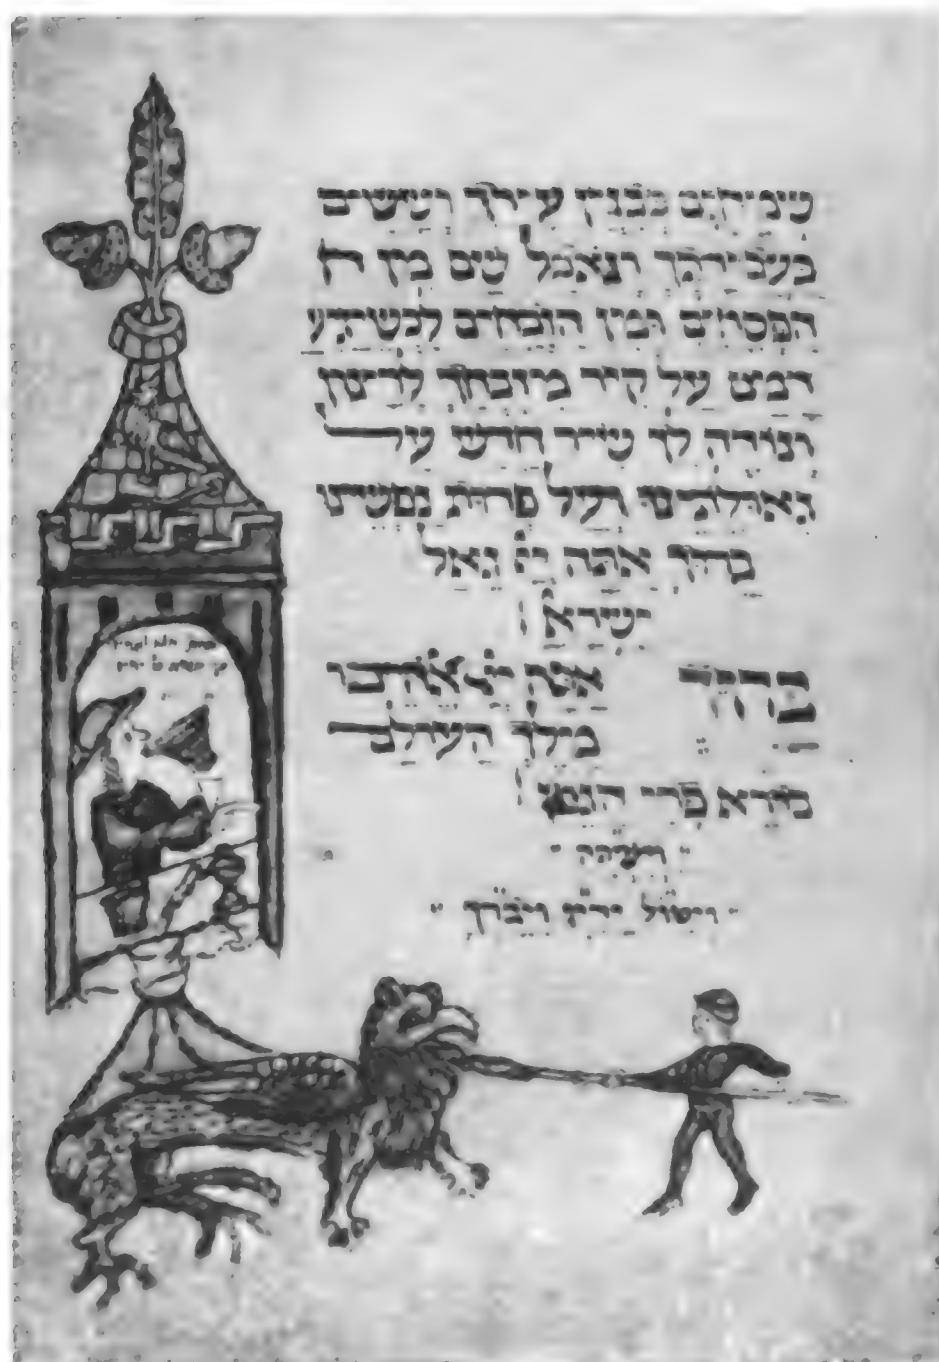 שמיחים בבנין עירך וששים
בעבודתך ונאכל שם מן ה
הפסחים ומן הזבחים כשיגיע
דמם על קיר מזבחך לרצון
ונודה לך שיר חדש על
גאולתינו ועל פדות נפשינו
ברוך אתה יי גאל
ישרא
ברוך אתה יי אלהינו
מלך העולם
בורא פרי הגפן
וישתה
ויטול ידיו ויברך